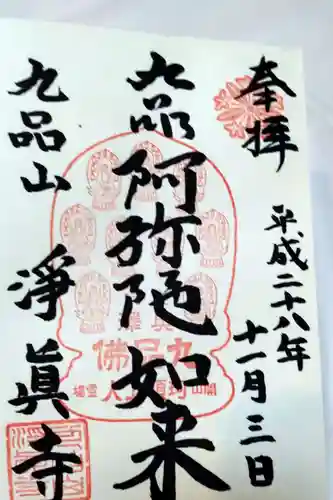 奉拝
平成二十八年
十一月三日
九品
阿弥陀如来
九品山
淨眞寺
九品佛